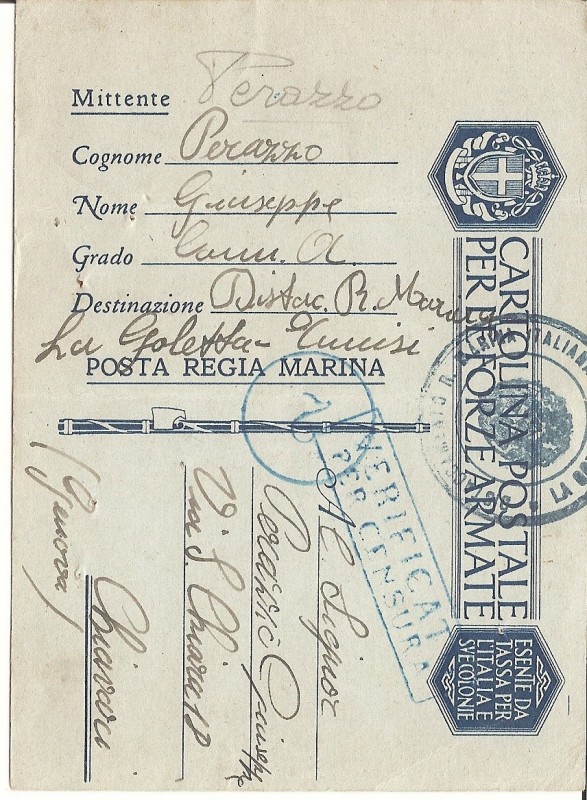 Perazzo
Mittente
Cognome Perazzo
Nome Giuseppe
Grado Com. A.
Destinazione Distac. R. Marina
La Goletta - Tunisi
POSTA REGIA MARINA
CARTOLINA POSTALE
PER LE FORZE ARMATE
ESENTE DA
TASSA PER
L'ITALIA E
SVE COLONIE
VERIFICAT
PER CENSURA
Al Signor
Perazzo Giuseppe
Via S. Chiara 18
Chiavari
(Genova)